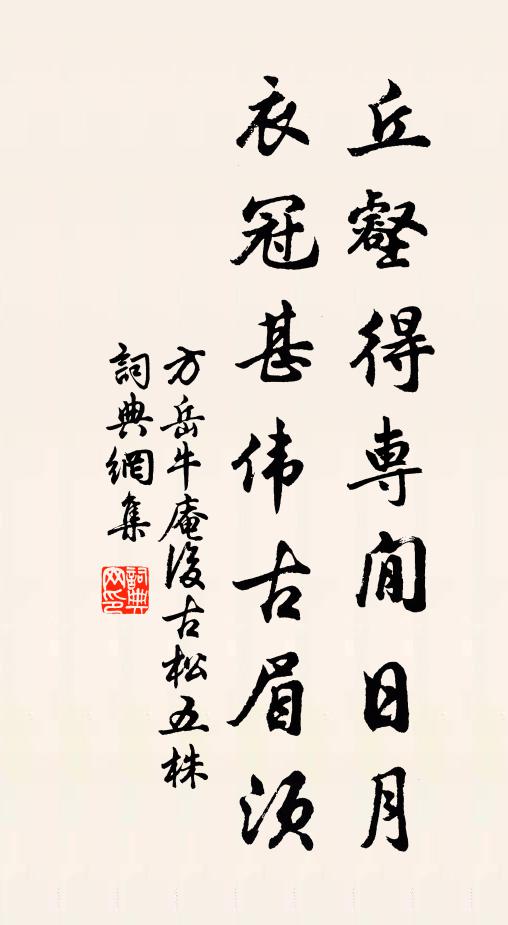 丘壑得専閒日月
衣冠甚伟古眉须
方岳牛庵後古松五株
詞典網集
詞典网印